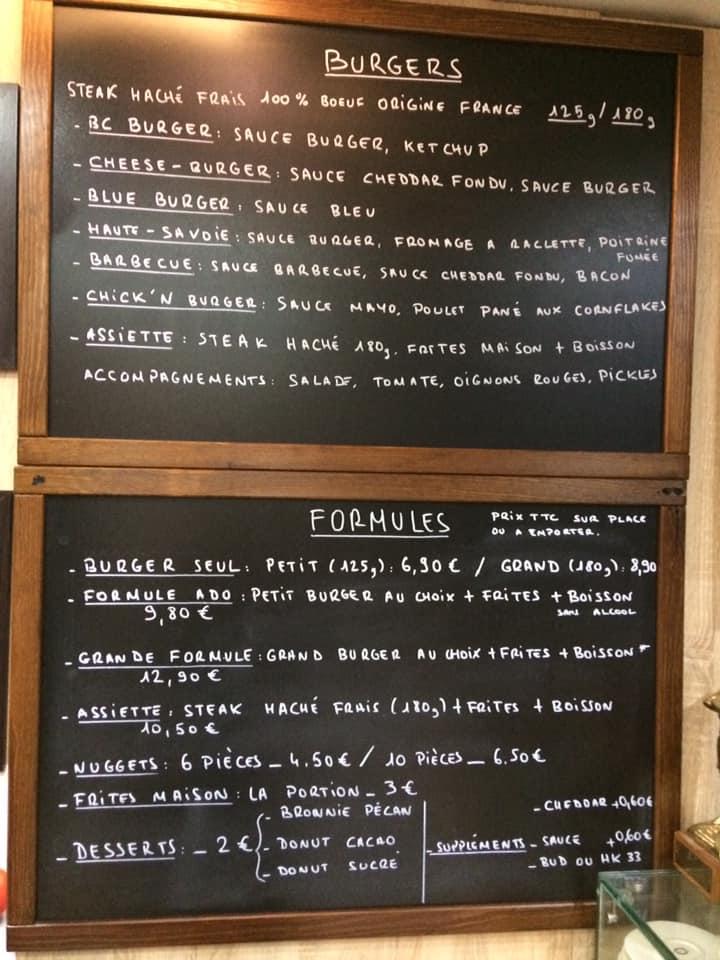 BURGERS
STEAK HACHÉ FRAIS 100% BOEUF ORIGINE FRANCE 125g/180g
- BC BURGER: SAUCE BURGER, KETCHUP
- CHEESE-BURGER: SAUCE CHEDDAR FONDU, SAUCE BURGER
- BLUE BURGER: SAUCE BLEU
- HAUTE-SAVOIE: SAUCE BURGER, FROMAGE A RACLETTE, POITRINE
FUMÉE
- BARBECUE: SAUCE BARBECUE, SAUCE CHEDDAR FONDU, BACON
- CHICK'N BURGER: SAUCE MAYO, POULET PANÉ AUX CORNFLAKES
- ASSIETTE: STEAK HACHÉ 180g, FRITES MAISON + BOISSON
ACCOMPAGNEMENTS: SALADE, TOMATE, OIGNONS ROUGES, PICKLES
FORMULES
PRIX TTC SUR PLACE
OU A EMPORTER.
- BURGER SEUL: PETIT (125g): 6,90 € / GRAND (180g): 8,90
- FORMULE ADO: PETIT BURGER AU CHOIX + FRITES + BOISSON
9,80 €
SANS ALCOOL
- GRANDE FORMULE: GRAND BURGER AU CHOIX + FRITES + BOISSON *
12,90 €
- ASSIETTE: STEAK HACHÉ FRAIS (180g) + FRITES + BOISSON
10,50 €
- NUGGETS: 6 PIÈCES _ 4.50 € / 10 PIÈCES _ 6.50€
- FRITES MAISON: LA PORTION _ 3 €
- DESSERTS: _ 2 €
- BROWNIE PÉCAN
- DONUT CACAO
- DONUT SUCRE
- SUPPLÉMENTS
- CHEDDAR +0,60€
- SAUCE +0,60€
- BUD OU HK 33